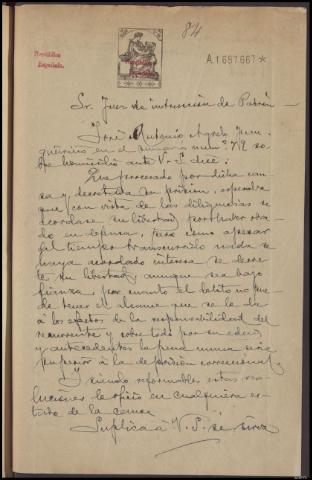 84
República
Española.
República
Española
A1687667*
Sr. Juez de instrucción de Padrón
José Antonio Agrelo
en el sumario num. 79 so-
bre homicidio ante V. S. dice:
Que procesado por dicha cau-
sa y decretada su prisión, esperaba
que con vista de las diligencias se
acordase su libertad por haber obra-
do en defensa, pero como apesar
del tiempo transcurrido nada se
haya acordado interesa se decre-
te su libertad, aunque sea bajo
fianza, por cuanto el delito no pue-
de tener el alcance que se le da
á los efectos de la responsabilidad del
recurrente y sobre todo por su edad
y antecedentes la pena nunca será
superior á la de prisión correccional.
Y siendo reformables estas reso-
luciones de oficio en cualquiera es-
tado de la causa
Suplica á V. S. se sirva